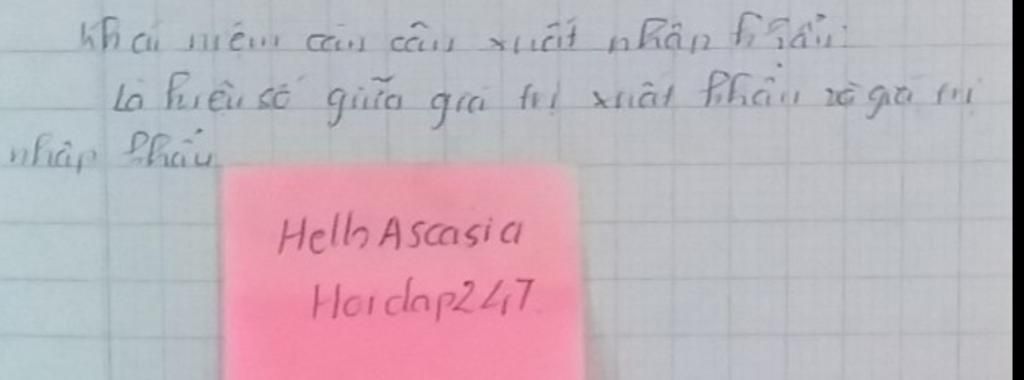 Khái niệm cán cân xuất nhập khẩu:
Là hiệu số giữa giá trị xuất khẩu và giá trị
nhập khẩu
Hello Ascasia
Hoidap247